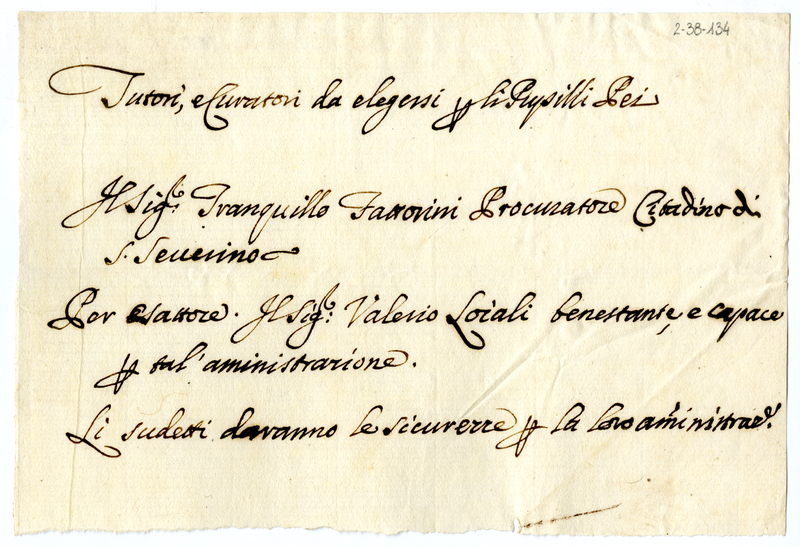 2-38-134
Tutori, e Curatori da elegersi p li Pupilli Pei
Il Sig.r Tranquillo Fattorini Procuratore Citadino di
S. Severino
Per esattore. Il Sig.r Valerio Loiali benestante, e capace
p tal' aministrazione.
Li sudetti daranno le sicurezze p la loro aministraz.e